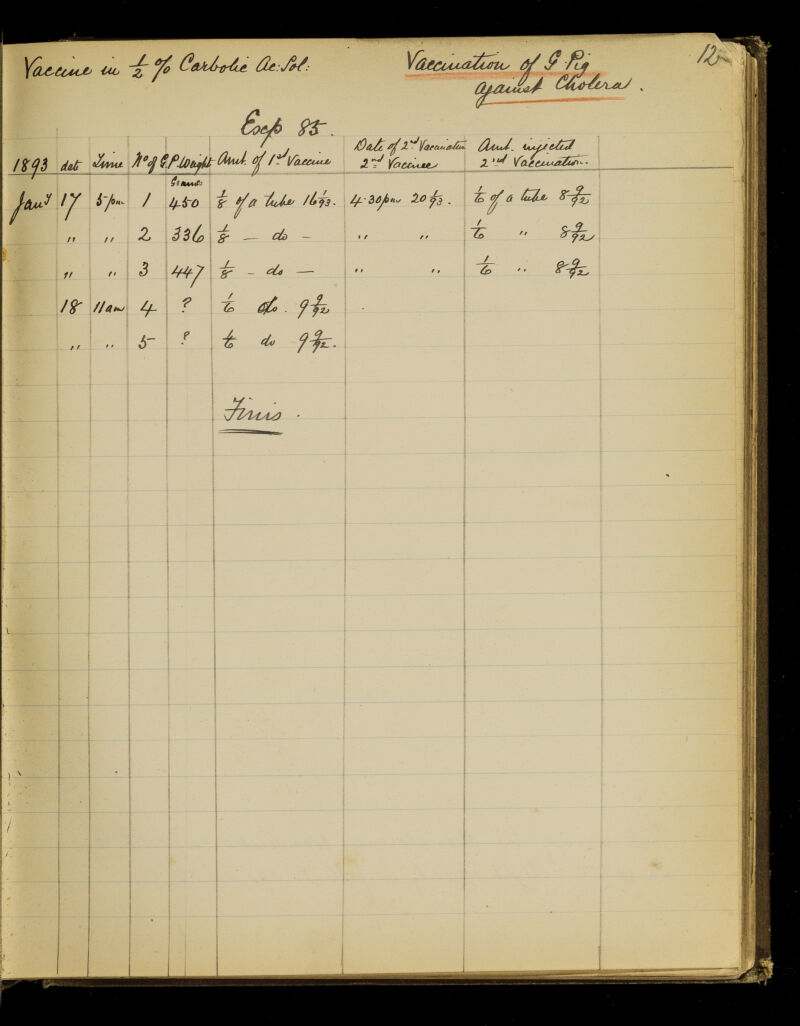 12
Vaccine in 1/2 % Carbolic Ac: Sol:
Vaccination of G Pig
against Cholera.
Exp 85.
1893 date Time No of G.P Weight Amt. of 1st Vaccine Date of 2nd Vaccination 2nd Vaccine Amt. injected 2nd Vaccination.
Grams
Jany 17 5 pm 1 450 1/8 of a tube 16 1/93. 4.30 pm 20 1/93. 1/6 of a tube 8 9/92
" " 2 336 1/8 - do - " " 1/6 " 8 9/92
" " 3 447 1/8 - do - " " 1/6 " 8 9/92
18 11 am 4 ? 1/6 do. 9 9/92
" " 5 ? 1/6 do 9 9/92.
Finis.